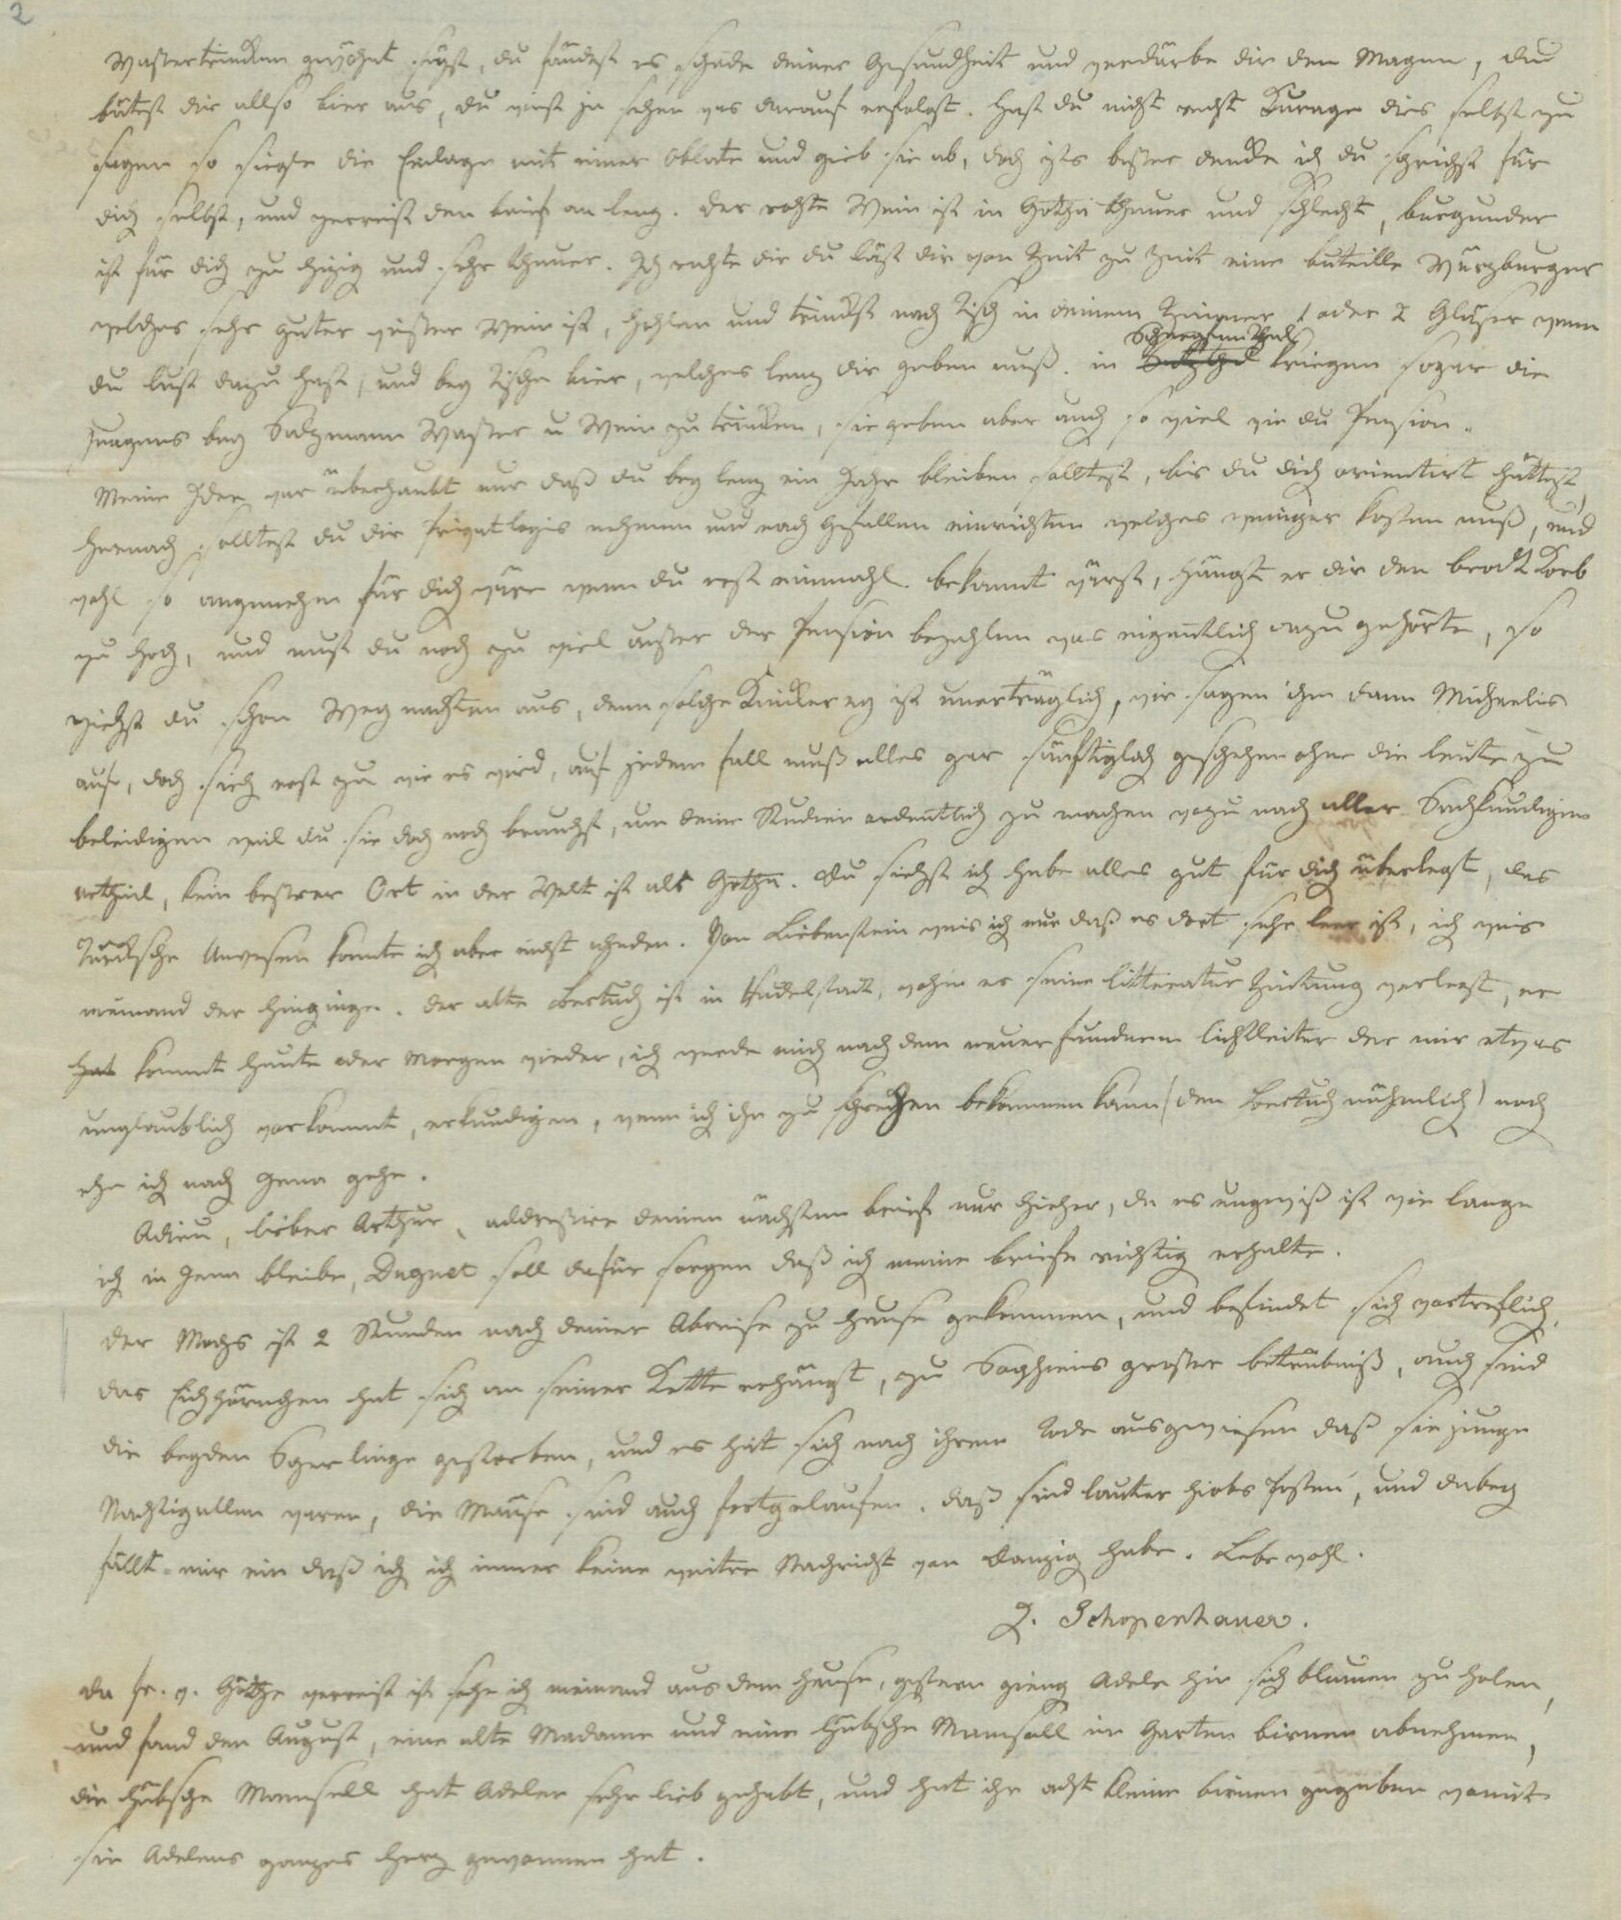 2
Wassertrinken gewöhnt seyst, du fändest es schade deiner Gesundheit und verdärbe dir den Magen, du
bätest dir allso bier aus, du wirst ja sehen was darauf erfolgt. Hast du nicht recht Kurage dies selbst zu
sagen so siegle die Einlage mit einer Oblate und gieb sie ab, doch ists besser dencke ich du sprichst für
dich selbst, und zerreist den brief an lenz. der rothe Wein ist in Gotha theuer und schlecht, burgunder
ist für dich zu hizig und sehr theuer. Ich rathe dir du läst dir von Zeit zu Zeit eine buteille Würzburger
welches sehr guter weisser Wein ist, hohlen und trinckst nach Tisch in deinem Zimmer 1 oder 2 Gläser wenn
du lust dazu hast, und bey Tische bier, welches lenz dir geben muß. in Schnepfenthal kriegen sogar die
jungens bey Salzmann Wasser u Wein zu trincken, sie geben aber auch so viel wie du Pension.
Meine Idee war überhaubt nur daß du bey lenz ein Jahr bleiben solltest, bis du dich orientirt hättest,
hernach solltest du dir Privatlogis nehmen und nach Gefallen einrichten welches weniger kosten muß, und
wohl so angenehm für dich wäre wenn du erst einmahl bekannt wärst, hängt er dir den brodt Korb
zu hoch, und must du noch zu viel ausser der Pension bezahlen was eigentlich dazu gehörte, so
ziehst du schon Weynachten aus, denn solche Knickerey ist unerträglich, wir sagen ihm dann Michaelis
auf, doch sieh erst zu wie es wird, auf jedem fall muß alles gar sänftiglich geschehen ohne die leute zu
beleidigen weil du sie doch noch brauchst, um deine Studien ordentlich zu machen wozu nach aller Sachkundigen
urtheil, kein bessrer Ort in der Welt ist als Gotha. du siehst ich habe alles gut für dich überlegt, das
Türcksche Anwesen konnte ich aber nicht ahnden. Von Liebenstein weis ich nur daß es dort sehr leer ist, ich weis
niemand der hinginge. der alte Bertuch ist in Rudelstadt, wohin er seine litteratur Zeitung verlegt, er
hat kommt heute oder Morgen wieder, ich werde mich nach dem neuerfundnem lichtleiter der mir etwas
unglaublich vorkommt, erkundigen, wenn ich ihn zu sprechen bekommen kann (den Bertuch nähmlich) noch
ehe ich nach Jena gehe.
Adieu, lieber Arthur, addressire deinen nächsten brief nur hieher, da es ungewiß ist wie lange
ich in Jena bleibe, Duguet soll dafür sorgen daß ich meine briefe richtig erhalte.
der Mops ist 2 Stunden nach deiner Abreise zu hause gekommen, und befindet sich vortreflich,
das Eichhörnchen hat sich an seiner Kette erhängt, zu Sophiens grosser betrübniß, auch sind
die beyden Sperlinge gestorben, und es hat sich nach ihrem Tode ausgewiesen daß sie junge
Nachtigallen waren, die Mäuse sind auch fortgelaufen. daß sind lauter hiobs Posten, und dabey
fällt mir ein daß ich ich immer keine weitre Nachricht von Danzig habe. Lebe wohl.
J. Schopenhauer.
da Fr. v. Göthe verreist ist sehe ich niemand aus dem hause, gestern gieng Adele hin sich blumen zu holen,
und fand den August, eine alte Madame und eine hübsche Mamsell im Garten birnen abnehmen,
die hübsche Mamsell hat Adelen sehr lieb gehabt, und hat ihr acht kleine birnen gegeben womit
sie Adelens ganzes herz gewonnen hat.